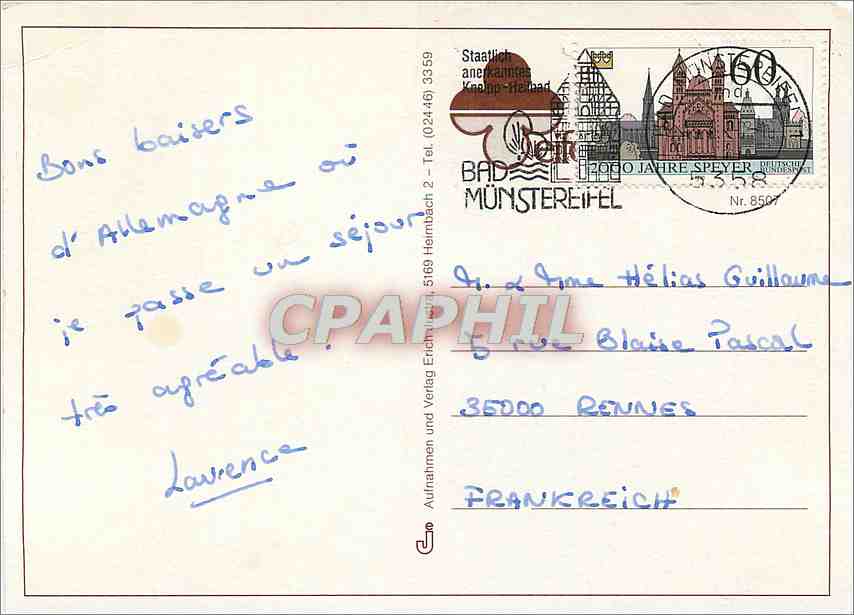 Bons baisers
d'Allemagne où
je passe un séjour
très agréable.
Laurence
Aufnahmen und Verlag Erich Justra, 5169 Heimbach 2 – Tel. (02446) 3359
Staatlich
anerkanntes
Kneipp-Heilbad
BAD
MÜNSTEREIFEL
60
2000 JAHRE SPEYER
DEUTSCHE
BUNDESPOST
5358
Nr. 8507
M. & Mme Hélias Guillaume
5 rue Blaise Pascal
35000 RENNES
FRANKREICH
CPAPHIL